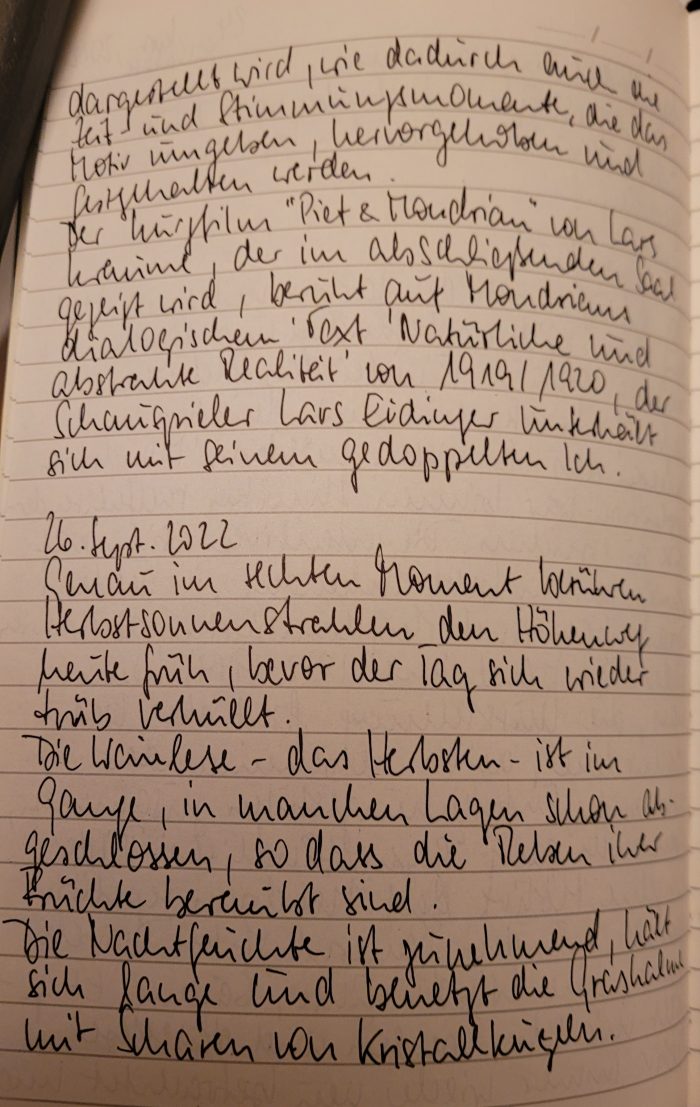 dargestellt wird, wie dadurch auch die
Zeit- und Stimmungsmomente, die das
Motiv umgeben, hervorgehoben und
festgehalten werden.
Der Kurzfilm "Piet & Mondrian" von Lars
Kraume, der im abschließenden Saal
gezeigt wird, beruht auf Mondrians
dialogischem Text 'Natürliche und
abstrakte Realität' von 1919/1920, der
Schauspieler Lars Eidinger unterhält
sich mit seinem gedoppelten Ich.
26. Sept. 2022
Genau im rechten Moment berühren
Herbstsonnenstrahlen den Höhenweg
heute früh, bevor der Tag sich wieder
trüb verhüllt.
Die Weinlese - das Herbsten - ist im
Gange, in manchen Lagen schon ab-
geschlossen, so dass die Reben ihrer
Früchte beraubt sind.
Die Nachtfeuchte ist zunehmend, hält
sich lange und benetzt die Grashalme
mit Scharen von Kristallkugeln.